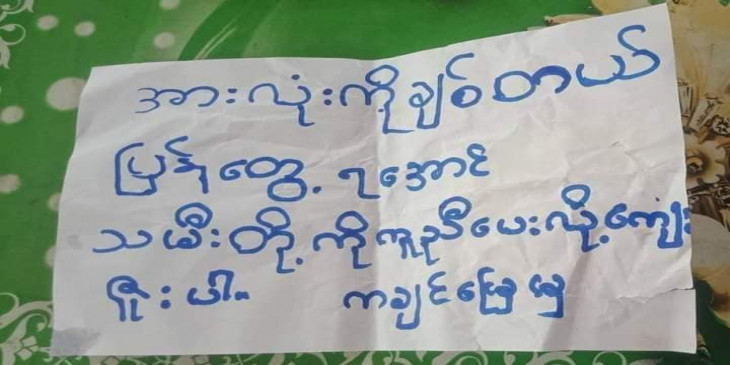 အားလုံးကိုချစ်တယ်
ပြန်တွေ့ ရအောင်
သမီးတို့ကိုကူညီပေးလို့ကျေး
ဇူးပါ။ ကချင်မြေမှ